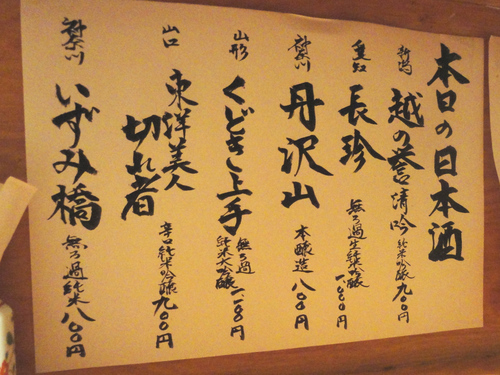 本日の日本酒
新潟 越の誉 清吟 純米吟醸 九〇〇円
愛知 長珍 無ろ過生純吟醸 一、〇〇〇円
神奈川 丹沢山 本醸造 八〇〇円
山形 くどき上手 無ろ過純米大吟醸 一、一〇〇円
山口 東洋美人 切れ者 辛口純米吟醸 九〇〇円
神奈川 いずみ橋 無ろ過純米 八〇〇円